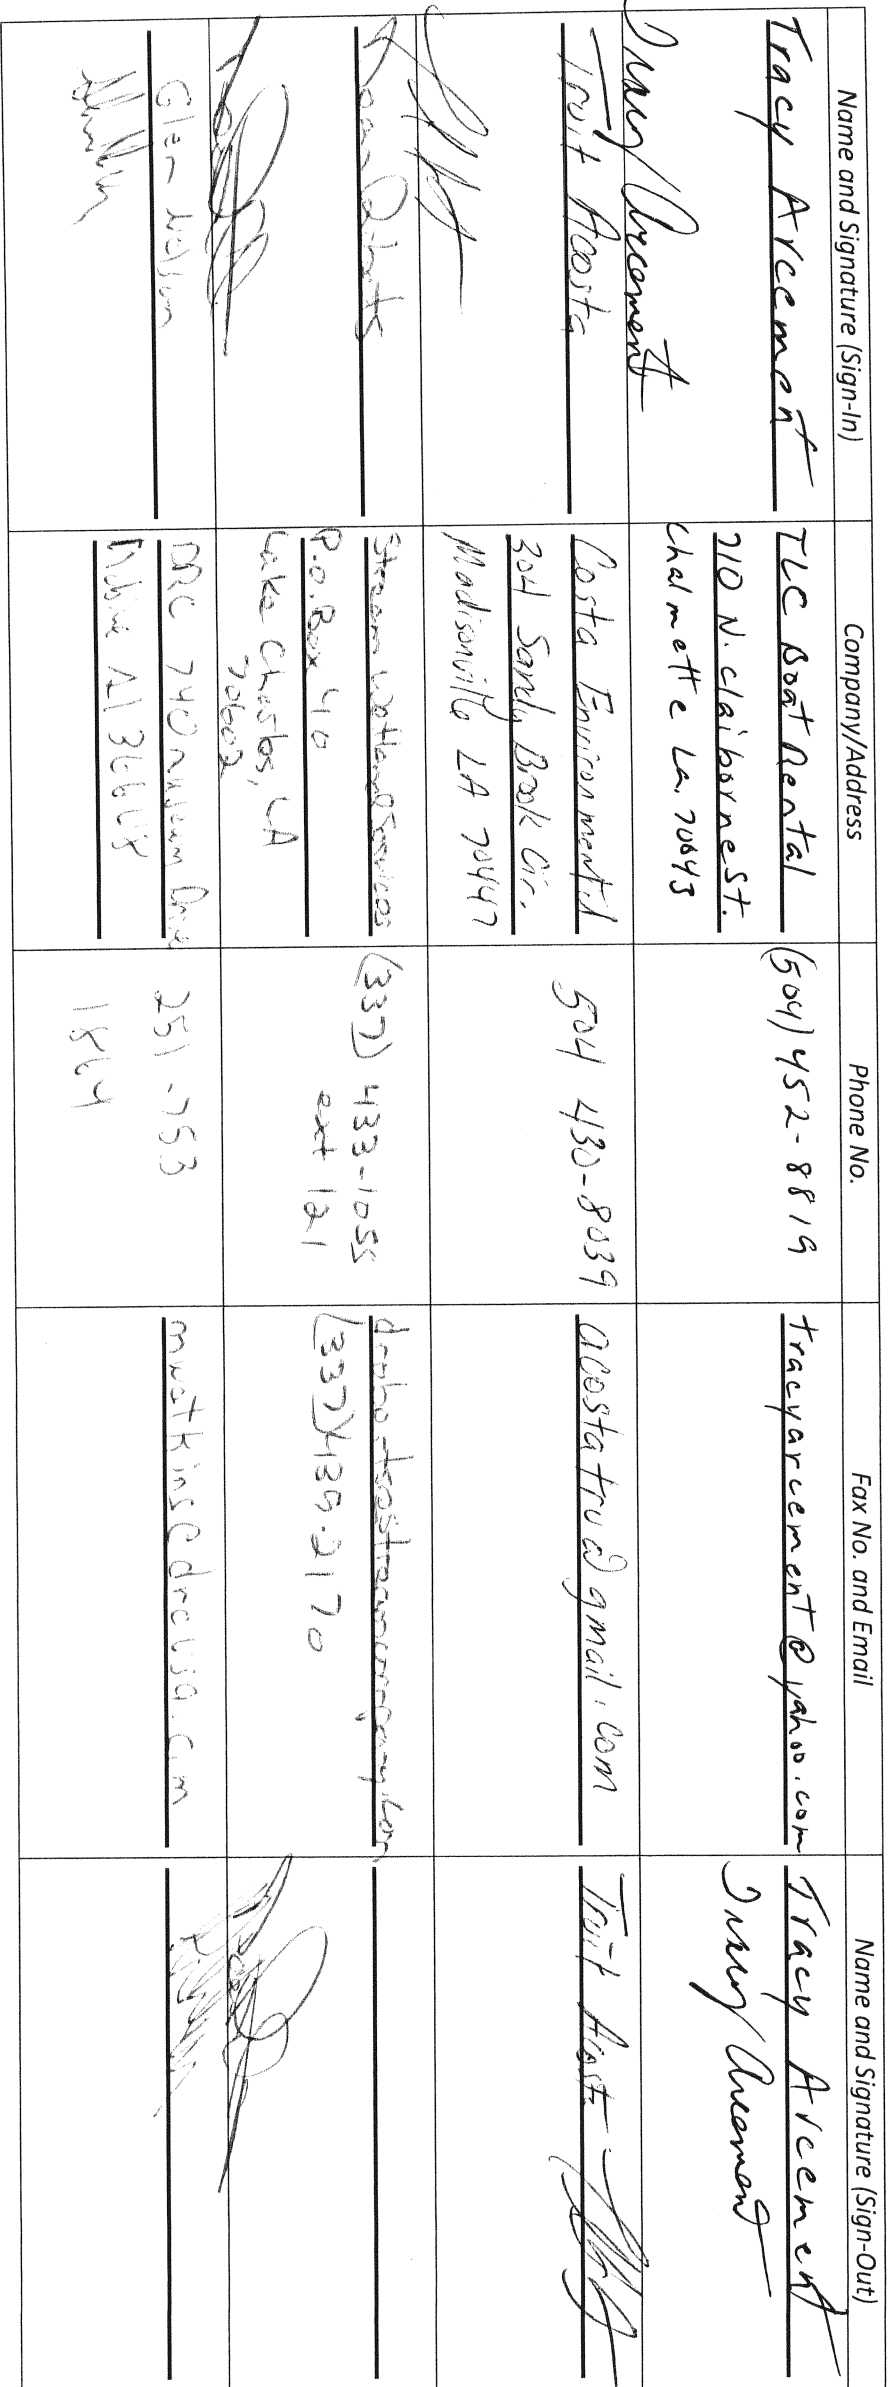 Name and Signature (Sign-In)
Company/Address
Phone No.
Fax No. and Email
Name and Signature (Sign-Out)
Tracy Arcement
Tracy Arcement
TLC Boat Rental
710 N. Claiborne St.
Chalmette La. 70043
(504) 452-8819
tracyarcement@yahoo.com
Tracy Arcement
Tracy Arcement
Truit Acosta
Costa Environmental
304 Sandy Brook Cir.,
Madisonville LA 70447
504 430-8039
acostatru@gmail.com
Truit Acosta
Stream Wetland Services
P.O. Box 40
Lake Charles, LA
70602
(337) 433-1055
ext 121
(337) 439-2170
Glen
DRC 740 Museum Drive
Mobile Al 36608
251-753
1864
mwatkins@drcusa.com